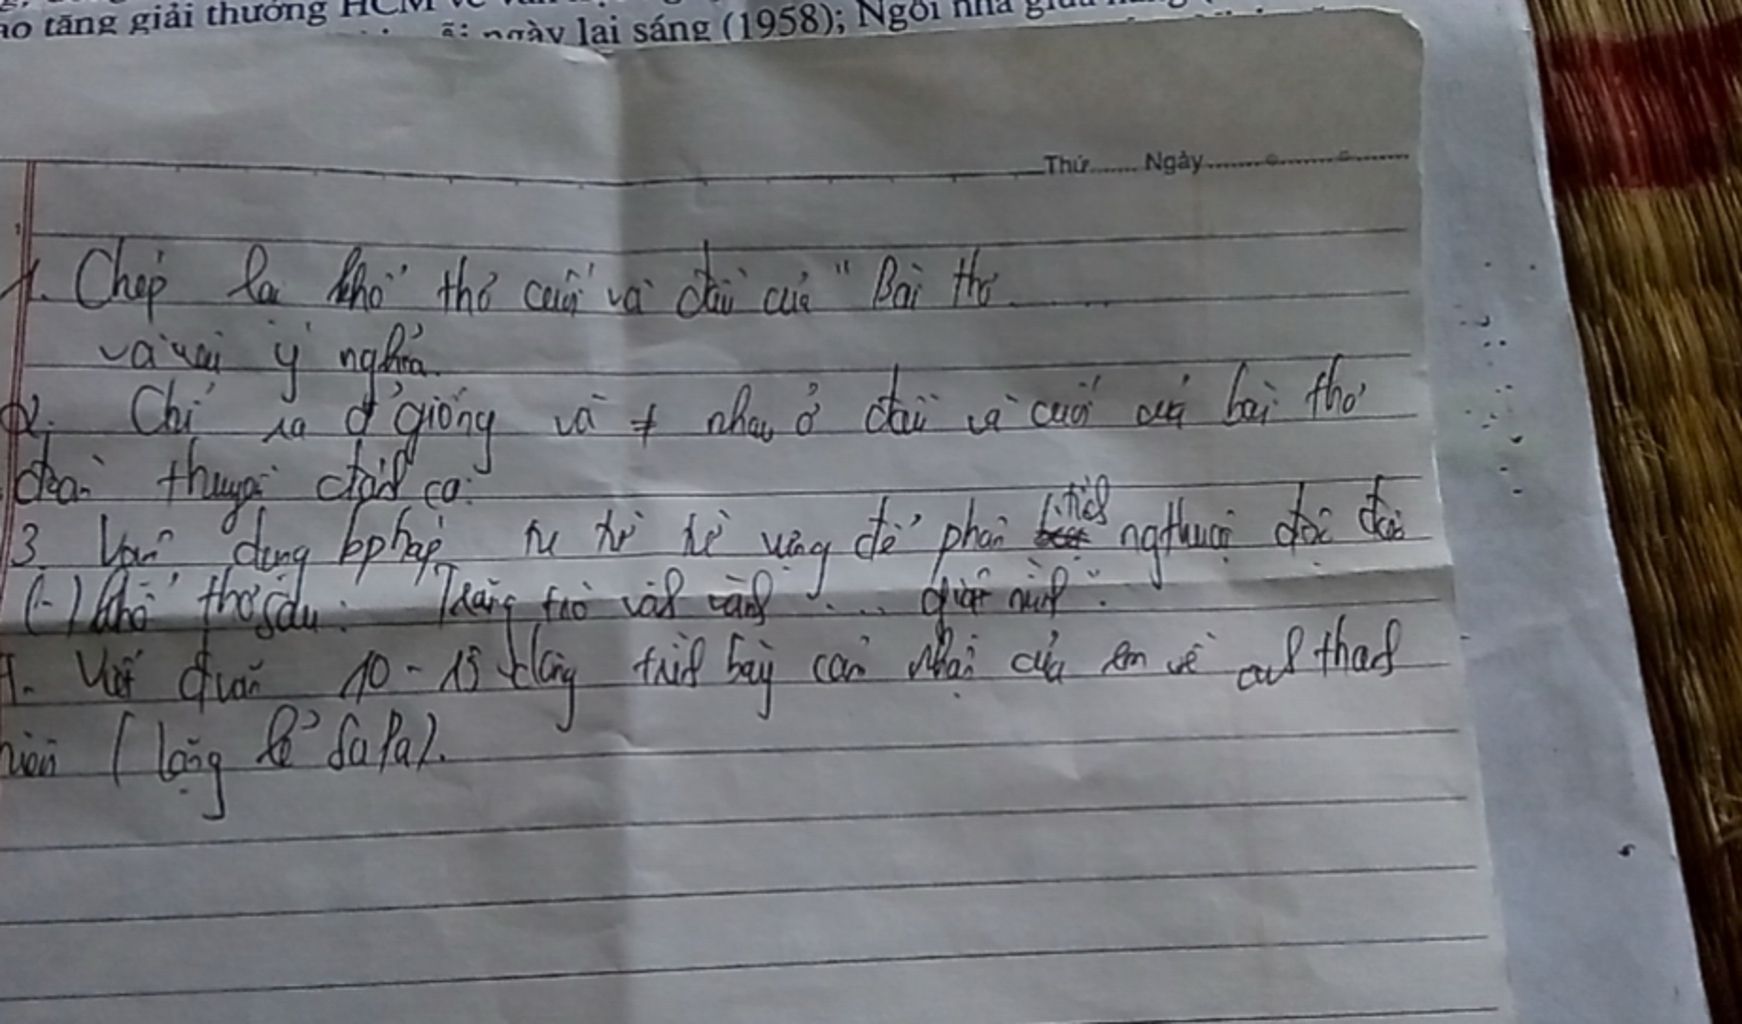 tăng giải thưởng HCM
ngày lại sáng (1958); Ngôi nhà
Thứ....... Ngày
1. Chép lại khổ thơ cuối và đầu của "Bài thơ ..........
và nói ý nghĩa.
2. Chỉ ra đ' giống và ≠ nhau ở đầu và cuối của bài thơ
đoàn thuyền đánh cá.
3. Vận dụng bpháp tu từ từ vựng để phân tích ngthuật độc đáo
(-) khổ thơ sau: "Trăng cứ ... giật mình".
4. Viết đ văn 10 - 15 dòng trình bày cảm nhận của em về anh thanh
niên (lặng lẽ SaPa).